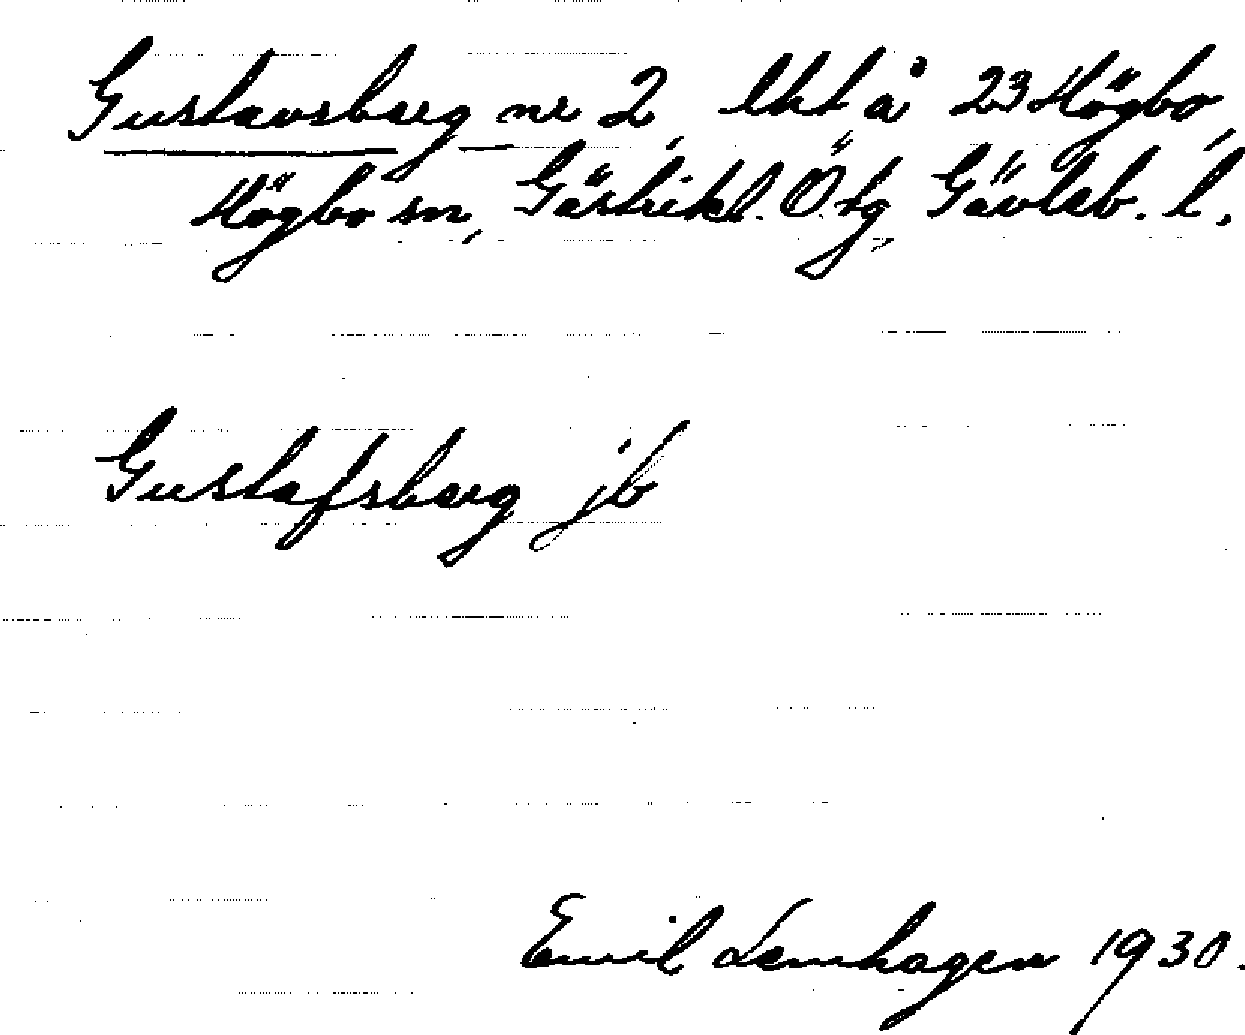 Gustavsberg nr 2, lht å 23 Högbo,
Högbo sn, Gästrikl. Ö. tg, Gävleb. l.
Gustafsberg jb
Emil Lemhagen 1930.